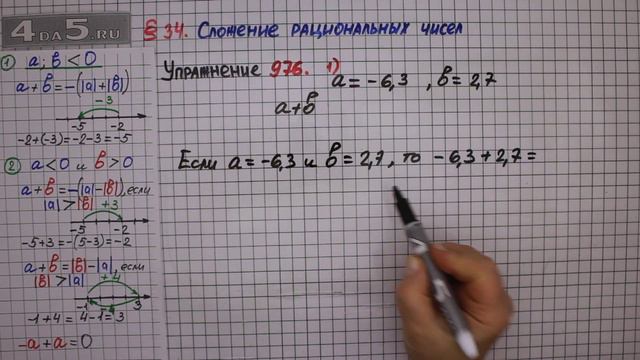 4DA5.RU
§ 34. Сложение рациональных чисел
① a; b < 0
a+b=-(|a|+|b|)
-3
-5 -2
-2+(-3)=-2-3=-5
② a<0 и b>0
a+b=-(|a|-|b|), если
|a|>|b| +3
-5 -2
-5+3=-(5-3)=-2
a+b=|b|-|a|, если
|b|>|a| +4
-1 3
-1+4=4-1=3
-a+a=0
Упражнение 976. 1) a=-6,3 , b=2,7
a+b
Если a=-6,3 и b=2,7, то -6,3+2,7=